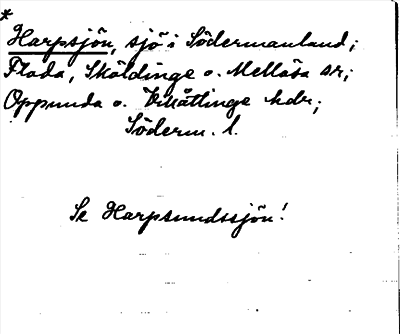 *
Harpsjön, sjö i Södermanland;
Floda, Sköldinge o. Mellösa sr;
Oppunda o. Villåttinge hdr;
Söderm. l.
Se Harpsundssjön!